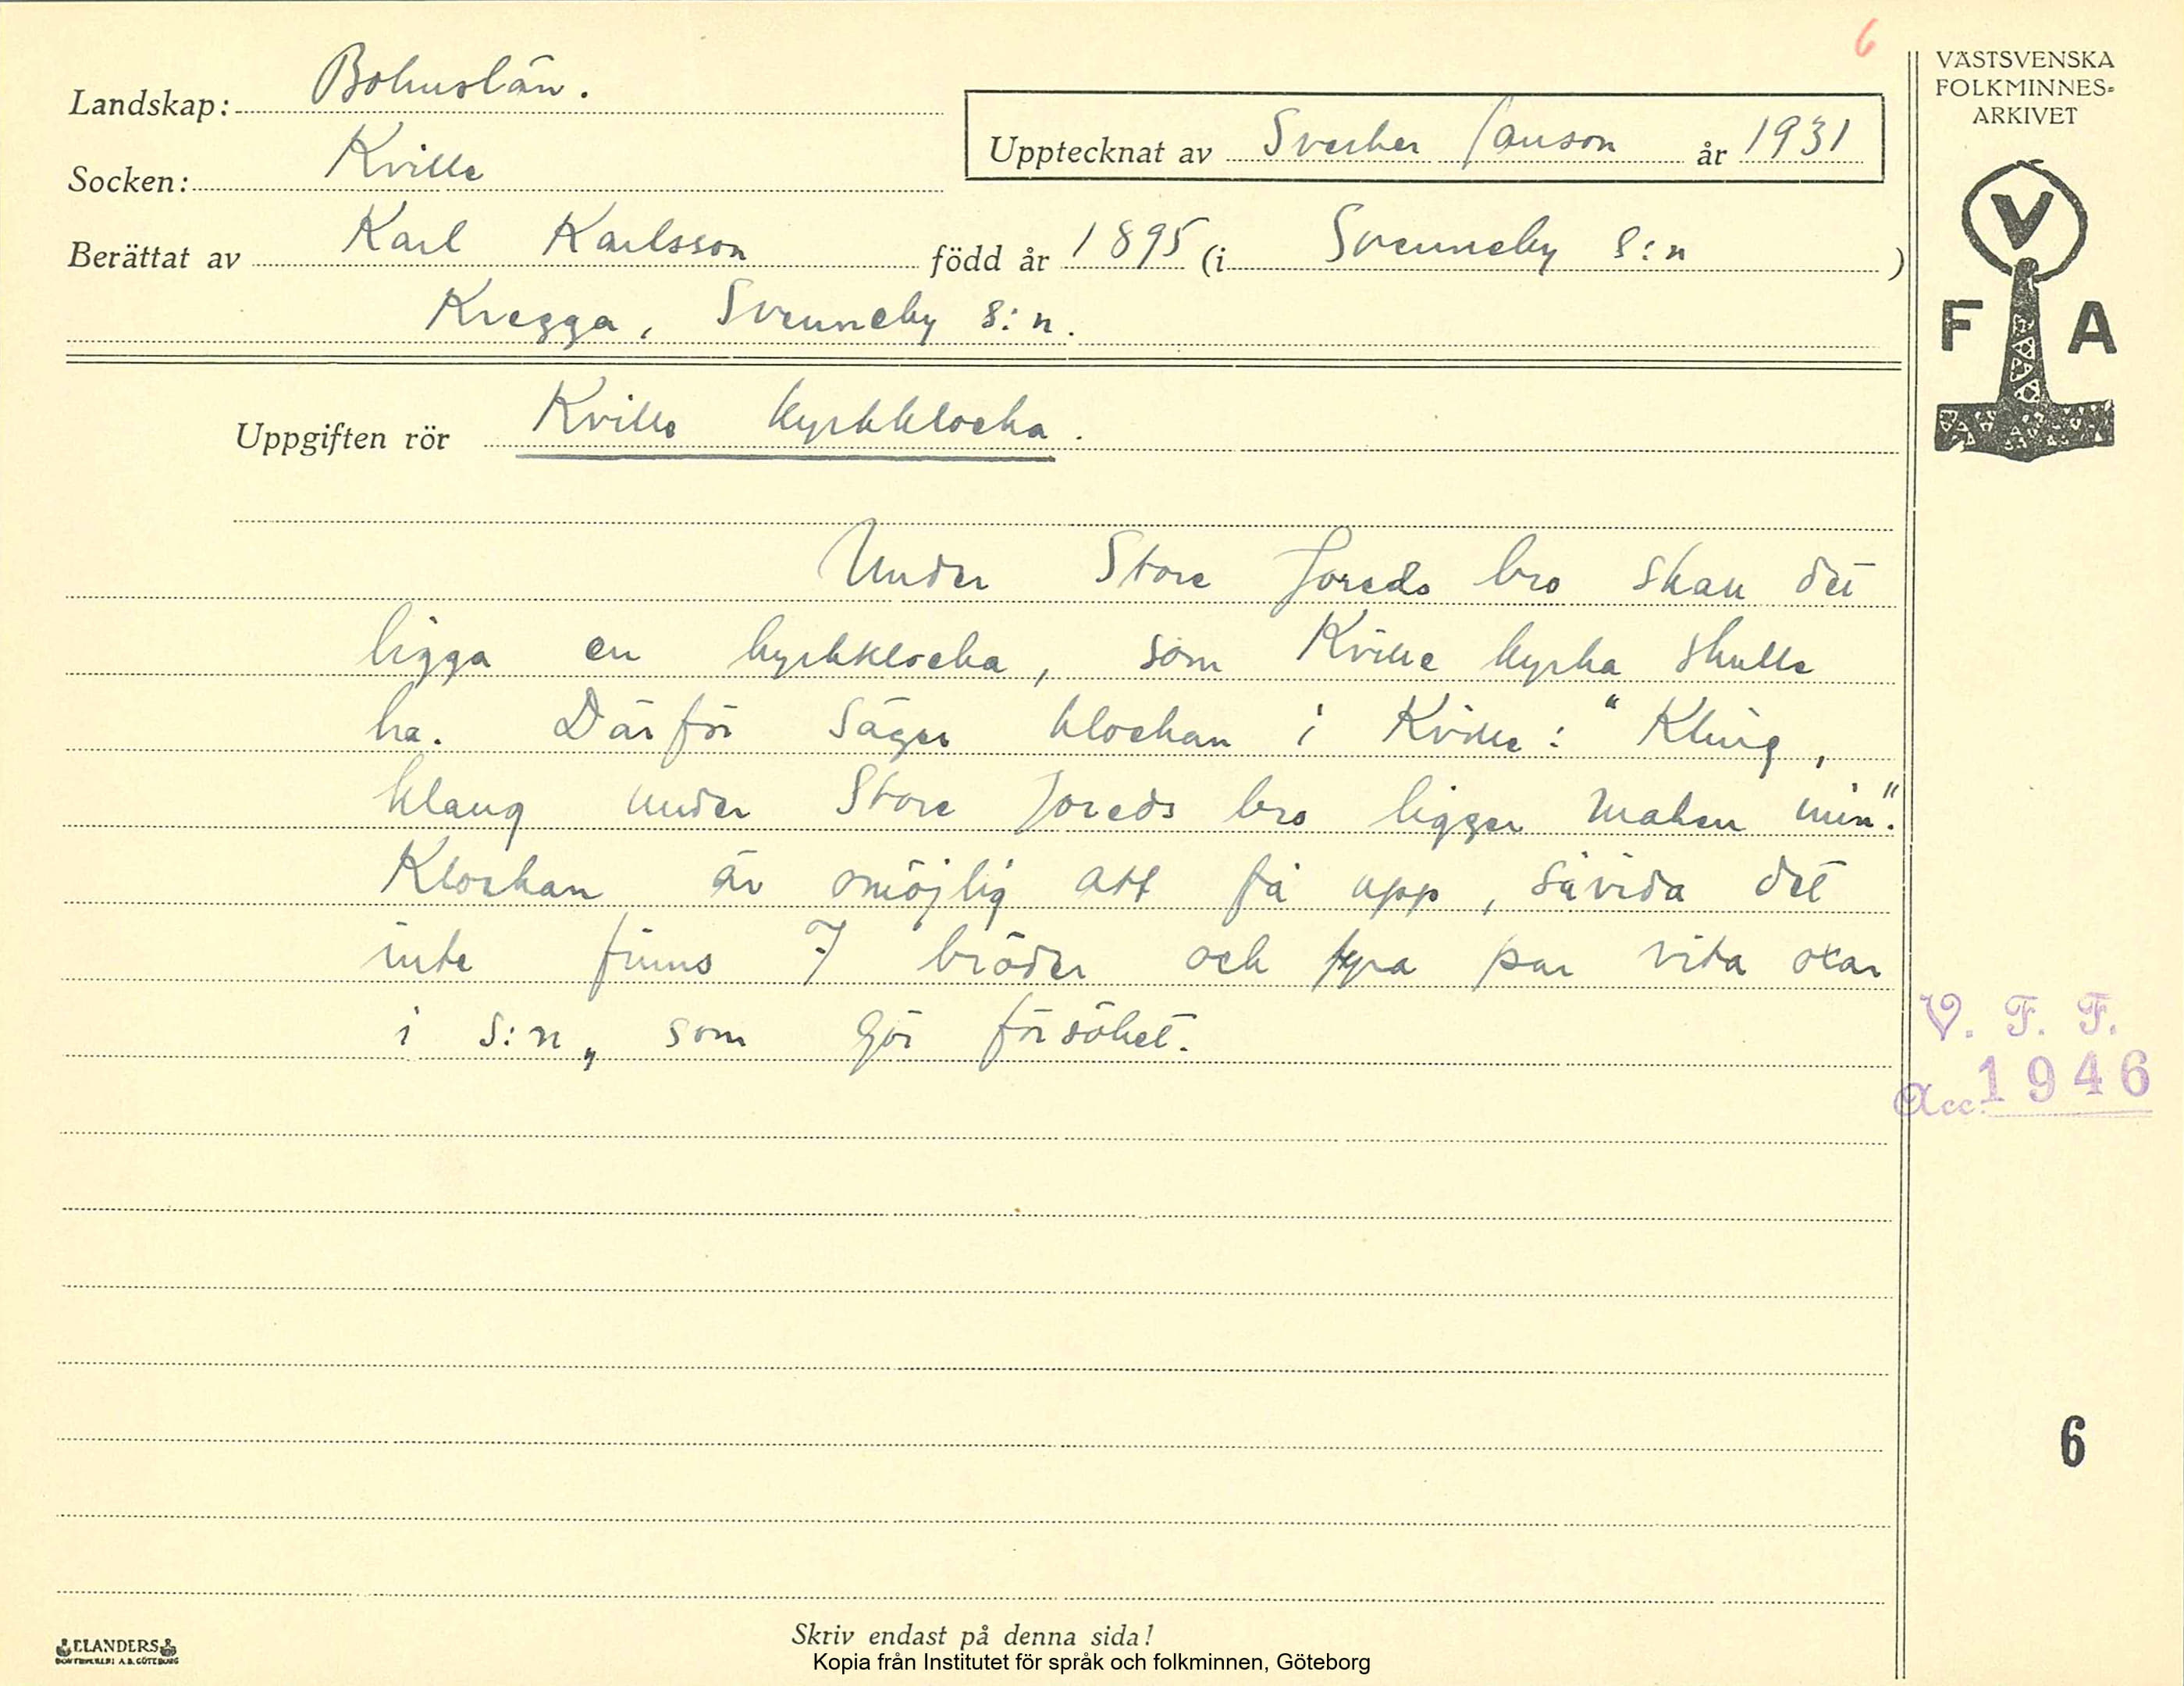 6
Landskap: Bohuslän.
Socken: Kville
Upptecknat av Sverker Janson år 1931
Berättat av Karl Karlsson född år 1895 (i Svenneby s:n )
Kregga, Svenneby s:n.
Uppgiften rör Kville kyrkklocka.
Under Store Joreds bro skall det
ligga en kyrkklocka, som Kville kyrka skulle
ha. Därför säger klockan i Kville: "Kling,
klang under Store Joreds bro ligger maken min."
Klockan är omöjlig att få upp, såvida det
inte finns 7 bröder och fyra par vita oxar
i s:n, som gör försöket.
VÄSTSVENSKA
FOLKMINNES-
ARKIVET
V
F A
V. F. F.
Acc. 1946
6
Skriv endast på denna sida!
ELANDERS
Kopia från Institutet för språk och folkminnen, Göteborg